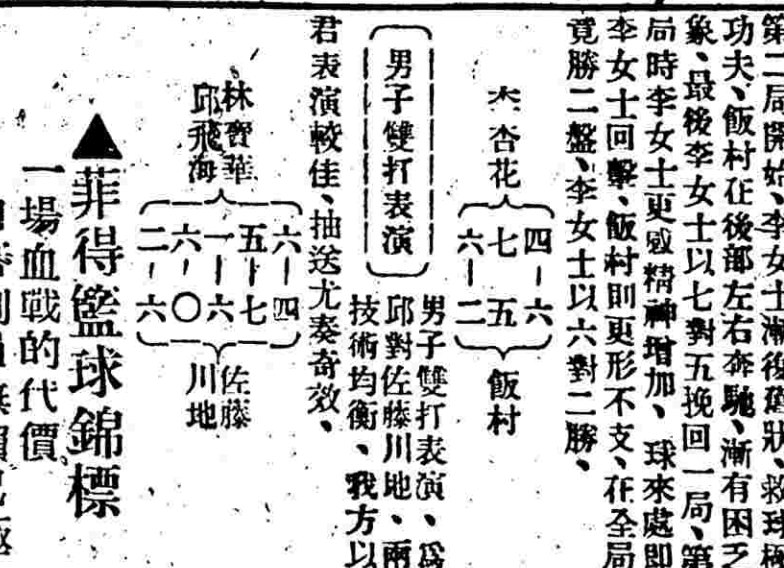 第二局開始、李女士漸復舊狀、救球極
功夫、飯村在後部左右奔馳、漸有困乏
象、最後李女士以七對五挽回一局、第
局時李女士更感精神增加、球來處即
李女士回擊、飯村則更形不支、在全局
竟勝二盤、李女士以六對二勝、
李杏花
四－六
七－五
六－二
飯村
男子雙打表演
男子雙打表演、爲
邱對佐藤川地、兩
技術均衡、我方以
君表演較佳、抽送尤奏奇效、
林寶華
邱飛海
六－四
五－七
一－六
六－〇
二－六
佐藤
川地
▲菲得籃球錦標
一場血戰的代價